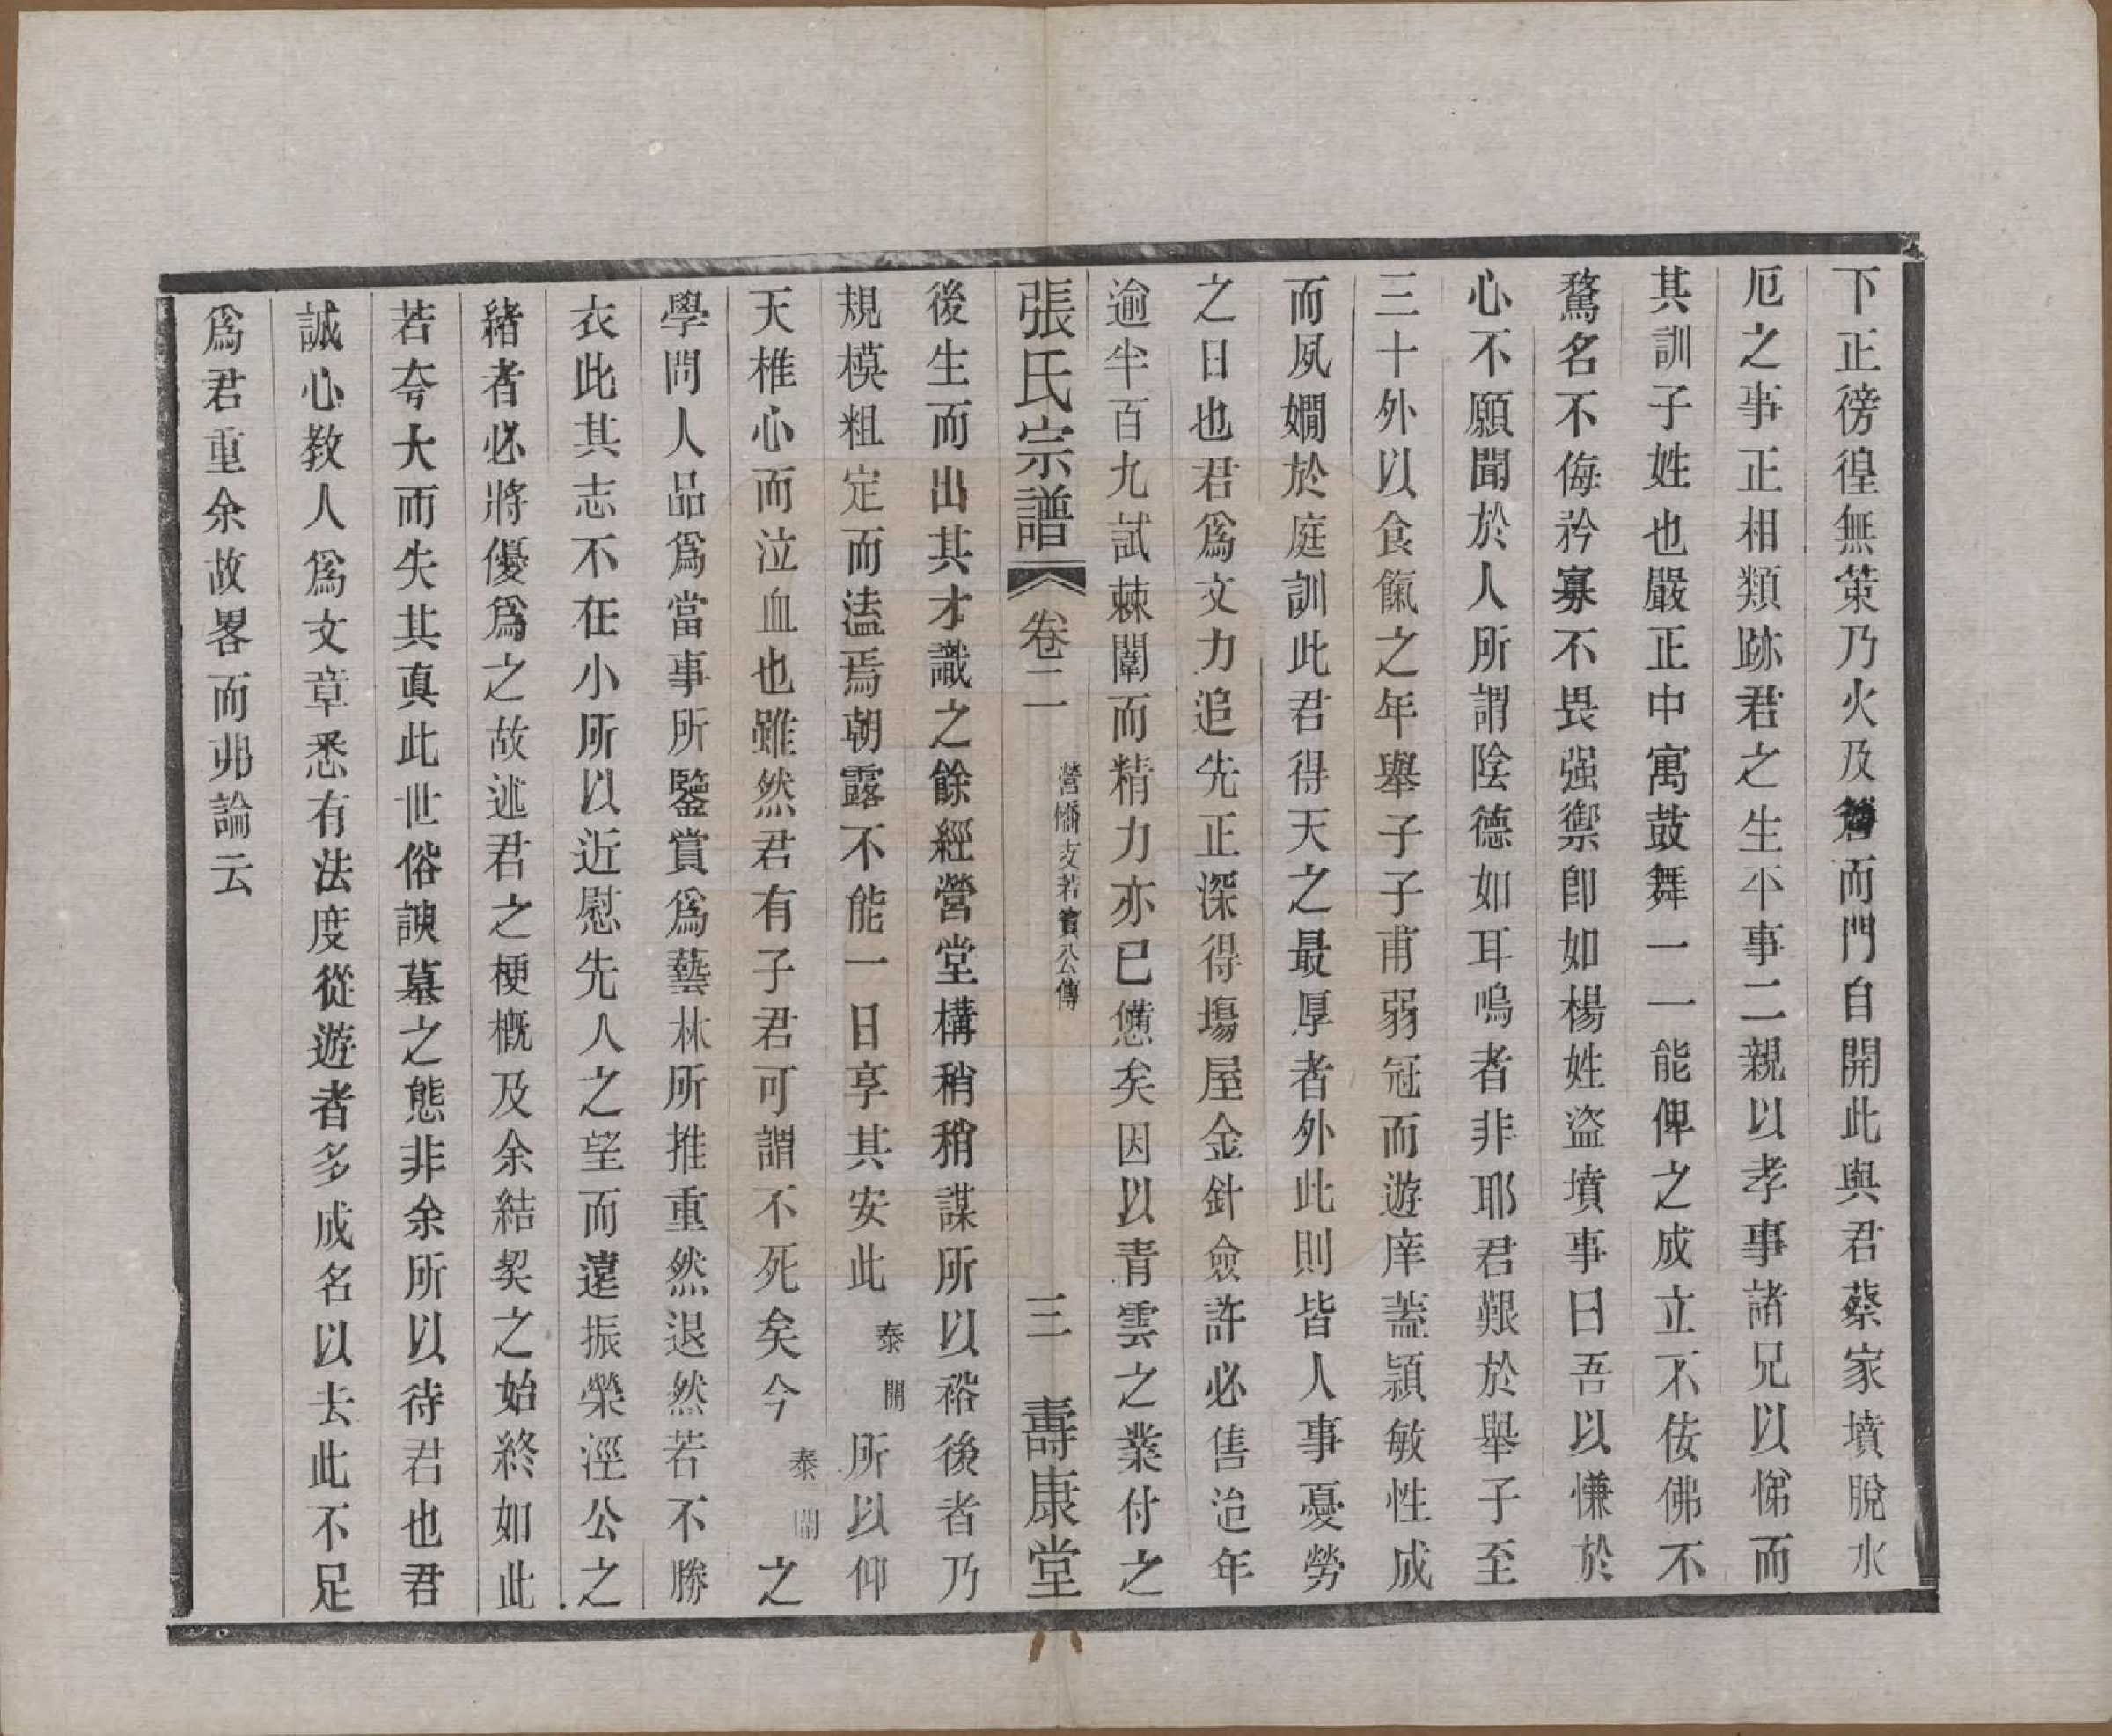 下正徬徨無策乃火及簷而門自開此與君蔡家墳脫水
厄之事正相類跡君之生平事二親以孝事諸兄以悌而
其訓子姓也嚴正中寓鼓舞一一能俾之成立不佞佛不
騖名不侮矜寡不畏强禦即如楊姓盜墳事曰吾以慊於
心不願聞於人所謂陰德如耳鳴者非耶君艱於舉子至
三十外以食餼之年舉子子甫弱冠而遊庠蓋穎敏性成
而夙嫺於庭訓此君得天之最厚者外此則皆人事憂勞
之日也君爲文力追先正深得塲屋金針僉許必售迨年
逾半百九試棘闈而精力亦已憊矣因以青雲之業付之
張氏宗譜 卷二 營橋支若賓公傳 三 壽康堂
後生而出其才識之餘經營堂構稍稍謀所以裕後者乃
規模粗定而溘焉朝露不能一日享其安此泰開所以仰
天椎心而泣血也雖然君有子君可謂不死矣今泰開之
學問人品爲當事所鑒賞爲藝林所推重然退然若不勝
衣此其志不在小所以近慰先人之望而遠振榮涇公之
緒者必將優爲之故述君之梗概及余結契之始終如此
若夸大而失其眞此世俗諛墓之態非余所以待君也君
誠心教人爲文章悉有法度從遊者多成名以去此不足
爲君重余故畧而弗論云